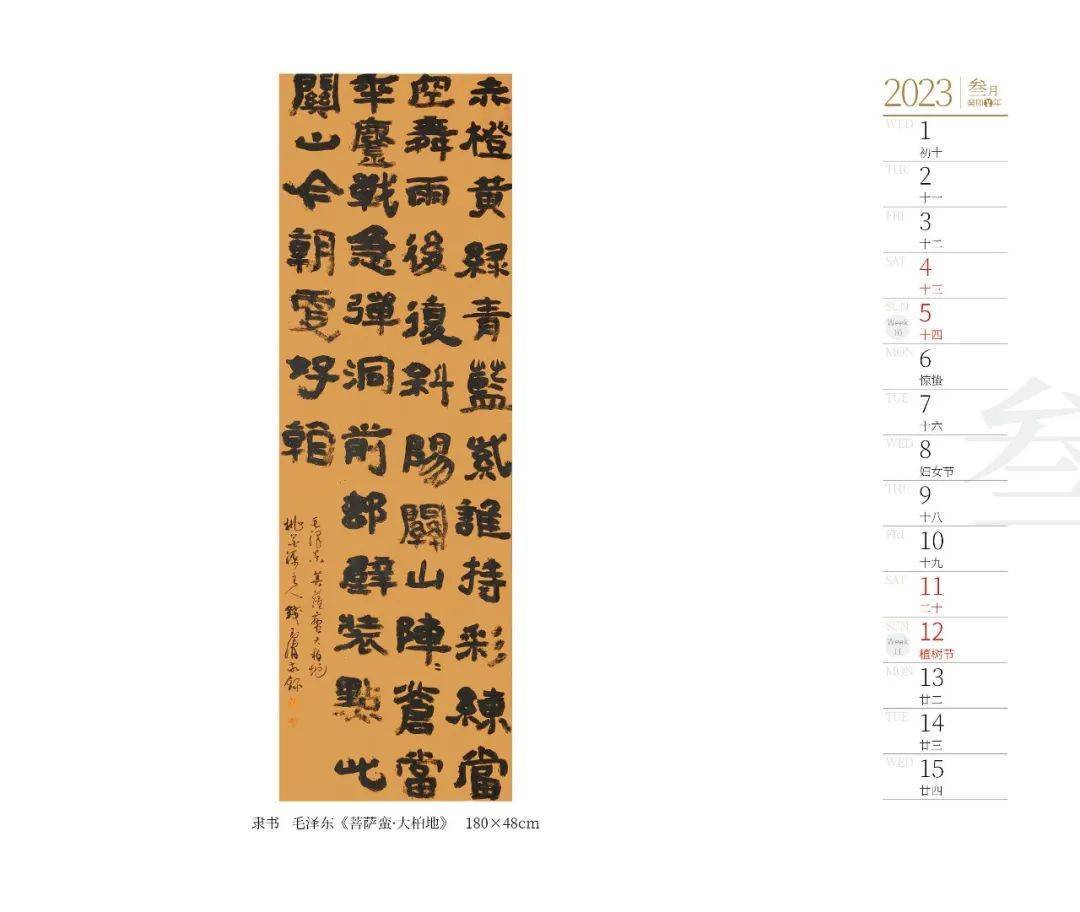 赤橙黄緑青藍紫誰持彩練當
空舞雨後復斜陽關山陣〻蒼當
年鏖戰急彈洞前邨壁裝點此
關山今朝更好看
毛澤東菩薩蠻大柏地
主人錢
隶书 毛泽东《菩萨蛮·大柏地》 180×48cm
2023 叁月
癸卯年
WED 1
初十
THU 2
十一
FRI 3
十二
SAT 4
十三
SUN 5
Week 10 十四
MON 6
惊蛰
TUE 7
十六
WED 8
妇女节
THU 9
十八
FRI 10
十九
SAT 11
二十
SUN 12
Week 11 植树节
MON 13
廿二
TUE 14
廿三
WED 15
廿四
叁